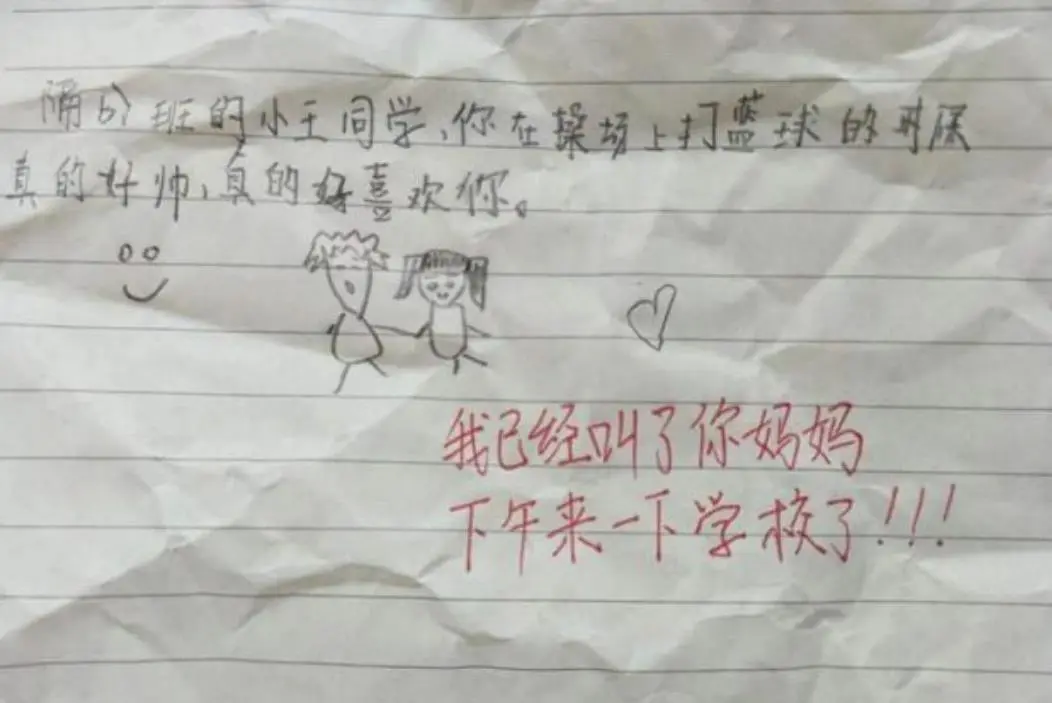 隔分班的小王同学,你在操场上打蓝球的时候
真的好帅,真的好喜欢你。
我已经叫了你妈妈
下午来一下学校了!!!